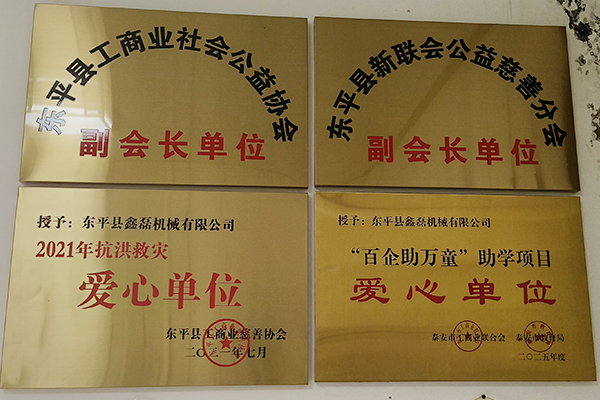 东平县工商业社会公益协会
副会长单位
东平县新联会公益慈善分会
副会长单位
授予：东平县鑫磊机械有限公司
2021年抗洪救灾
爱心单位
东平县工商业慈善协会
二〇二一年七月
授予：东平县鑫磊机械有限公司
“百企助万童”助学项目
爱心单位
泰安市工商业联合会 泰安市教育局
二〇二五年度